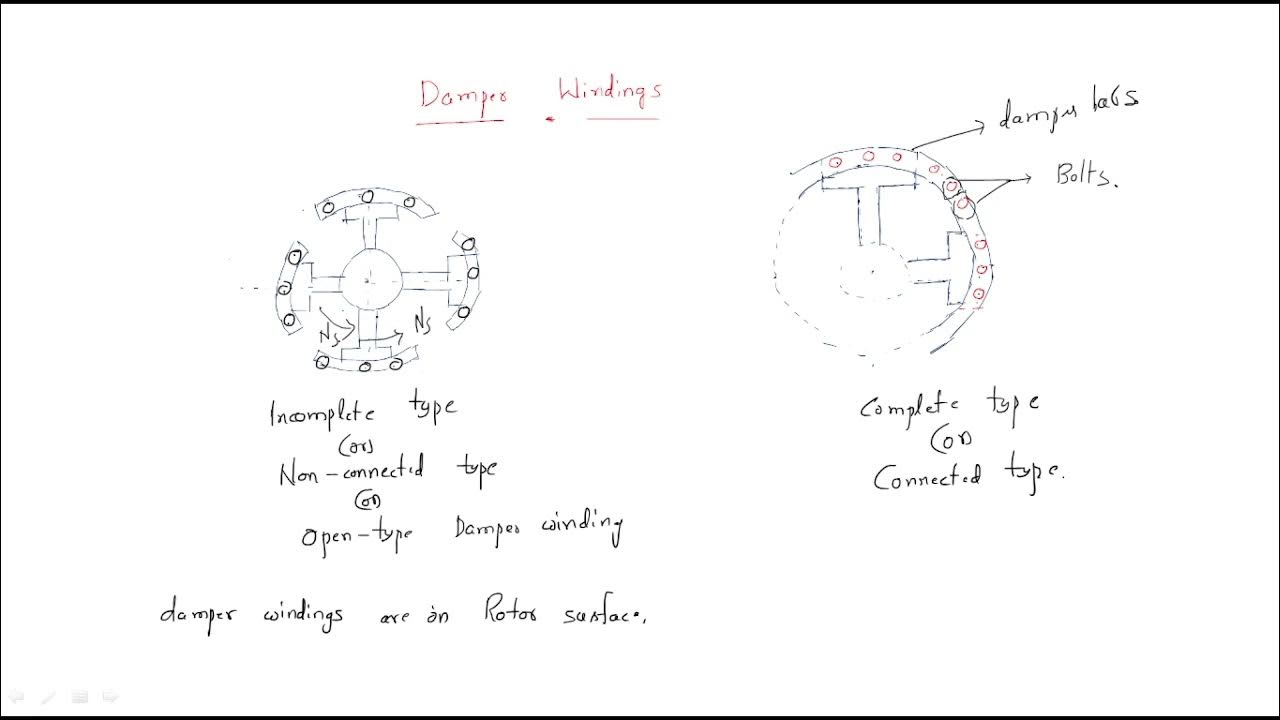 Damper Windings
damper bars
Bolts.
Ns
Ns
Incomplete type
(or)
Non-connected type
(or)
Open-type Damper winding
Complete type
(or)
Connected type.
damper windings are in Rotor surface.